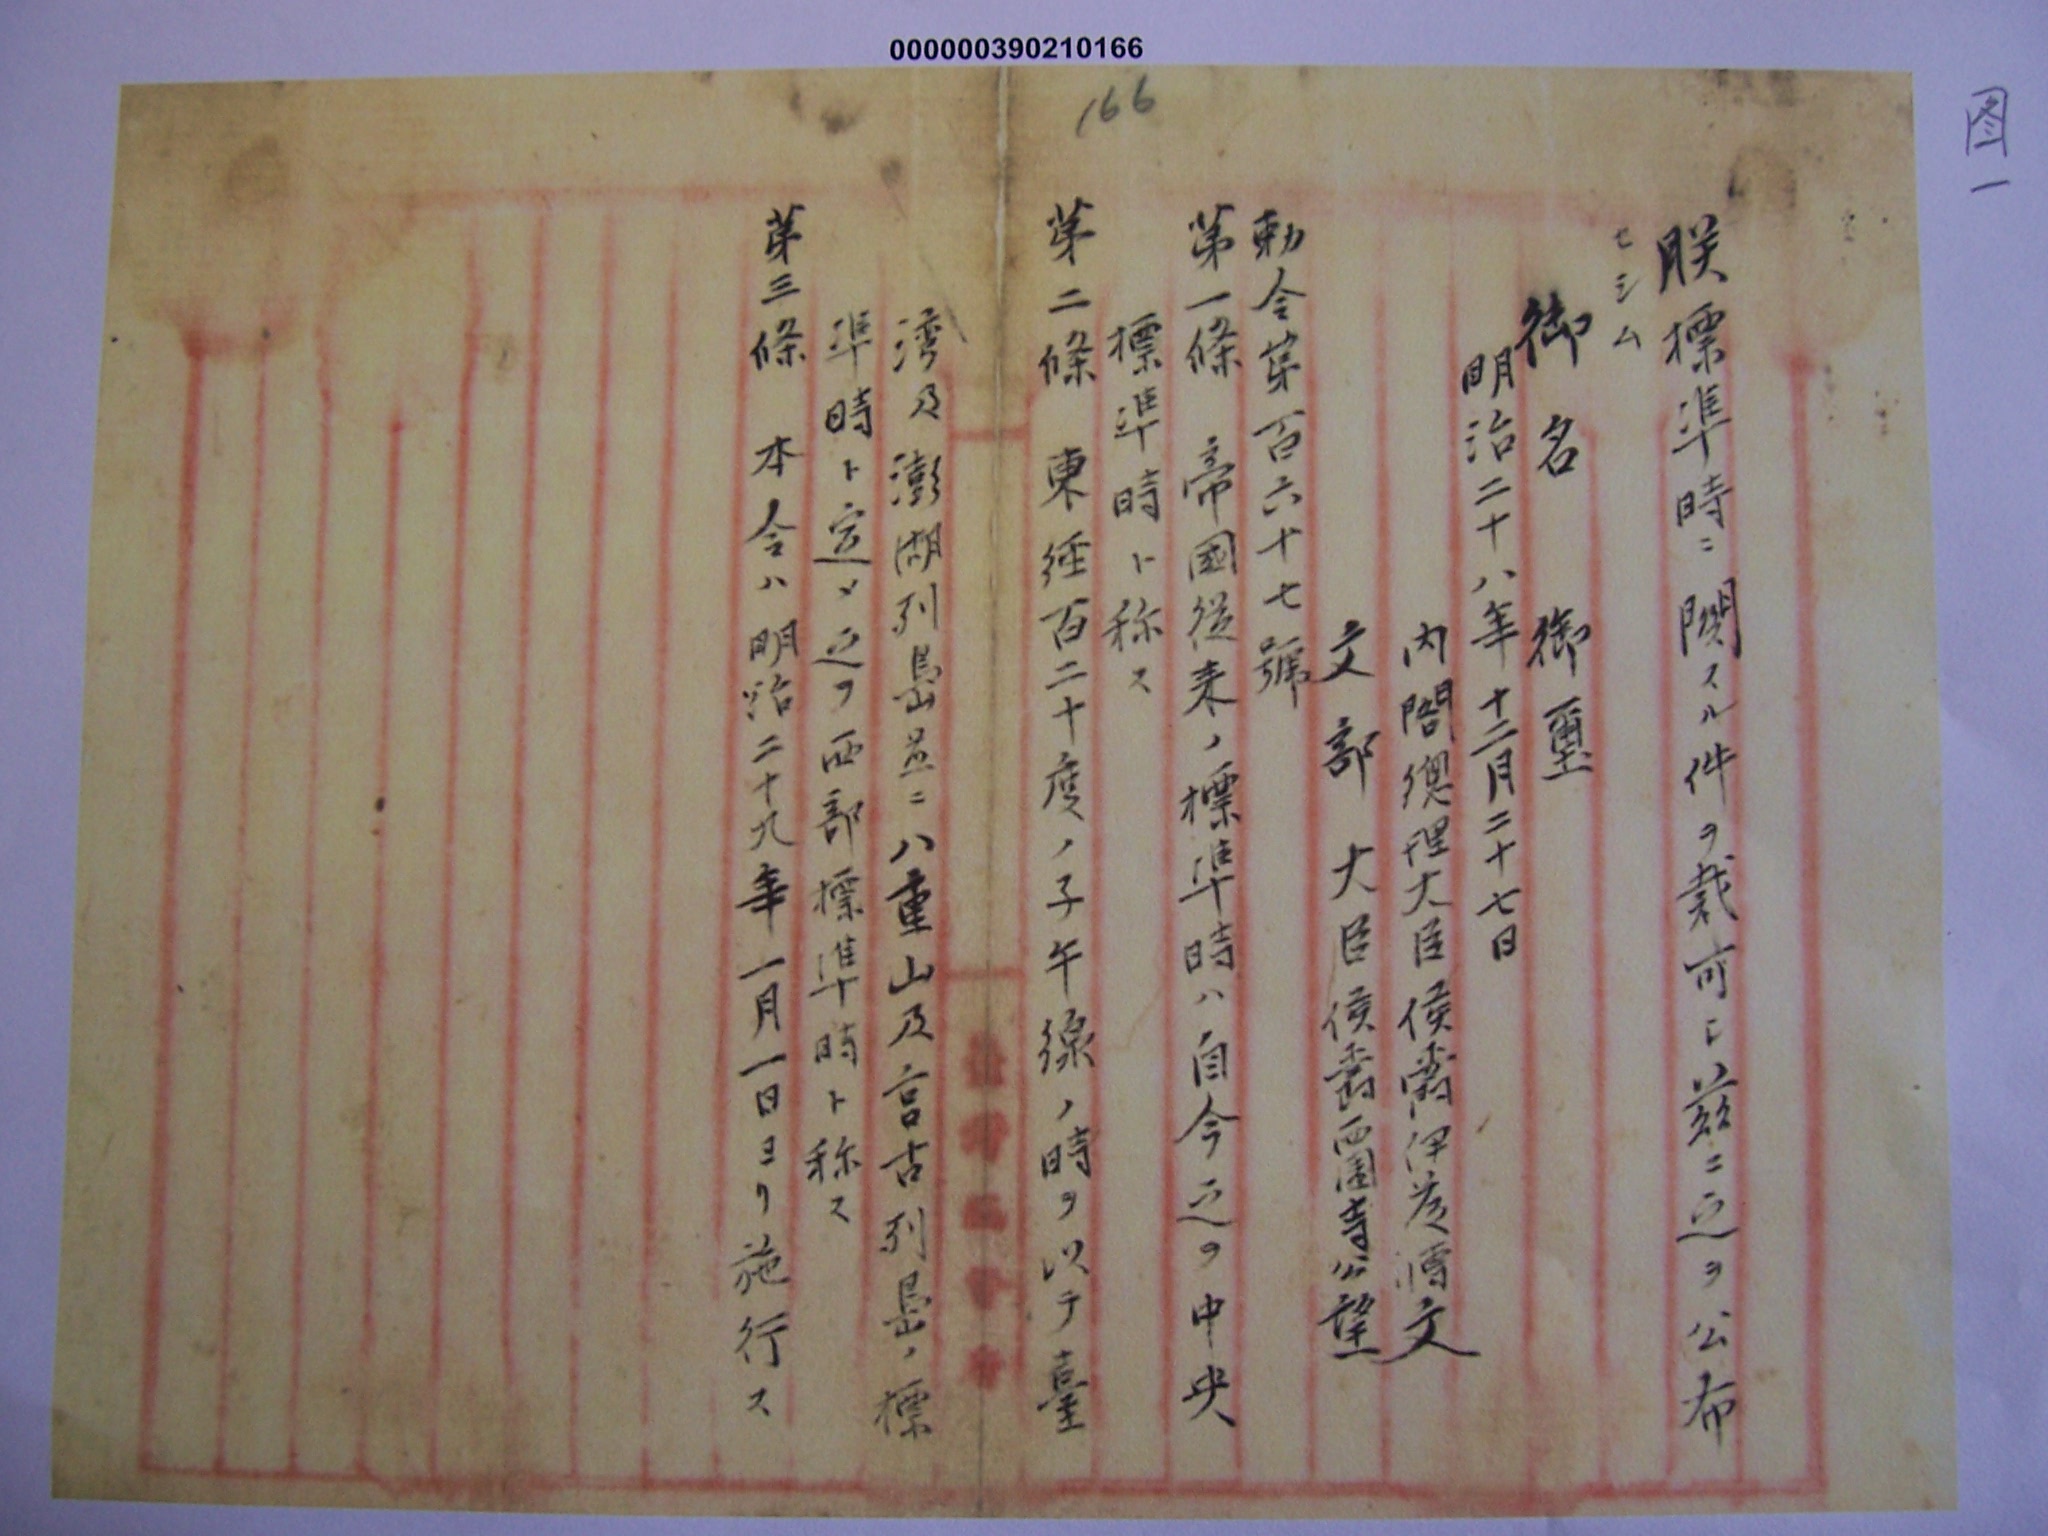 000000390210166
166
图一
朕標準時ニ関スル件ヲ裁可シ茲ニ之ヲ公布
セシム
御名 御璽
明治二十八年十二月二十七日
内閣總理大臣侯爵伊藤博文
文部大臣侯爵西園寺公望
勅令第百六十七號
第一條 帝國従来ノ標準時ハ自今之ヲ中央
標準時ト称ス
第二條 東経百二十度ノ子午線ノ時ヲ以テ臺
湾及澎湖列島並ニ八重山及宮古列島ノ標
準時ト定メ之ヲ西部標準時ト称ス
第三條 本令ハ明治二十九年一月一日ヨリ施行ス